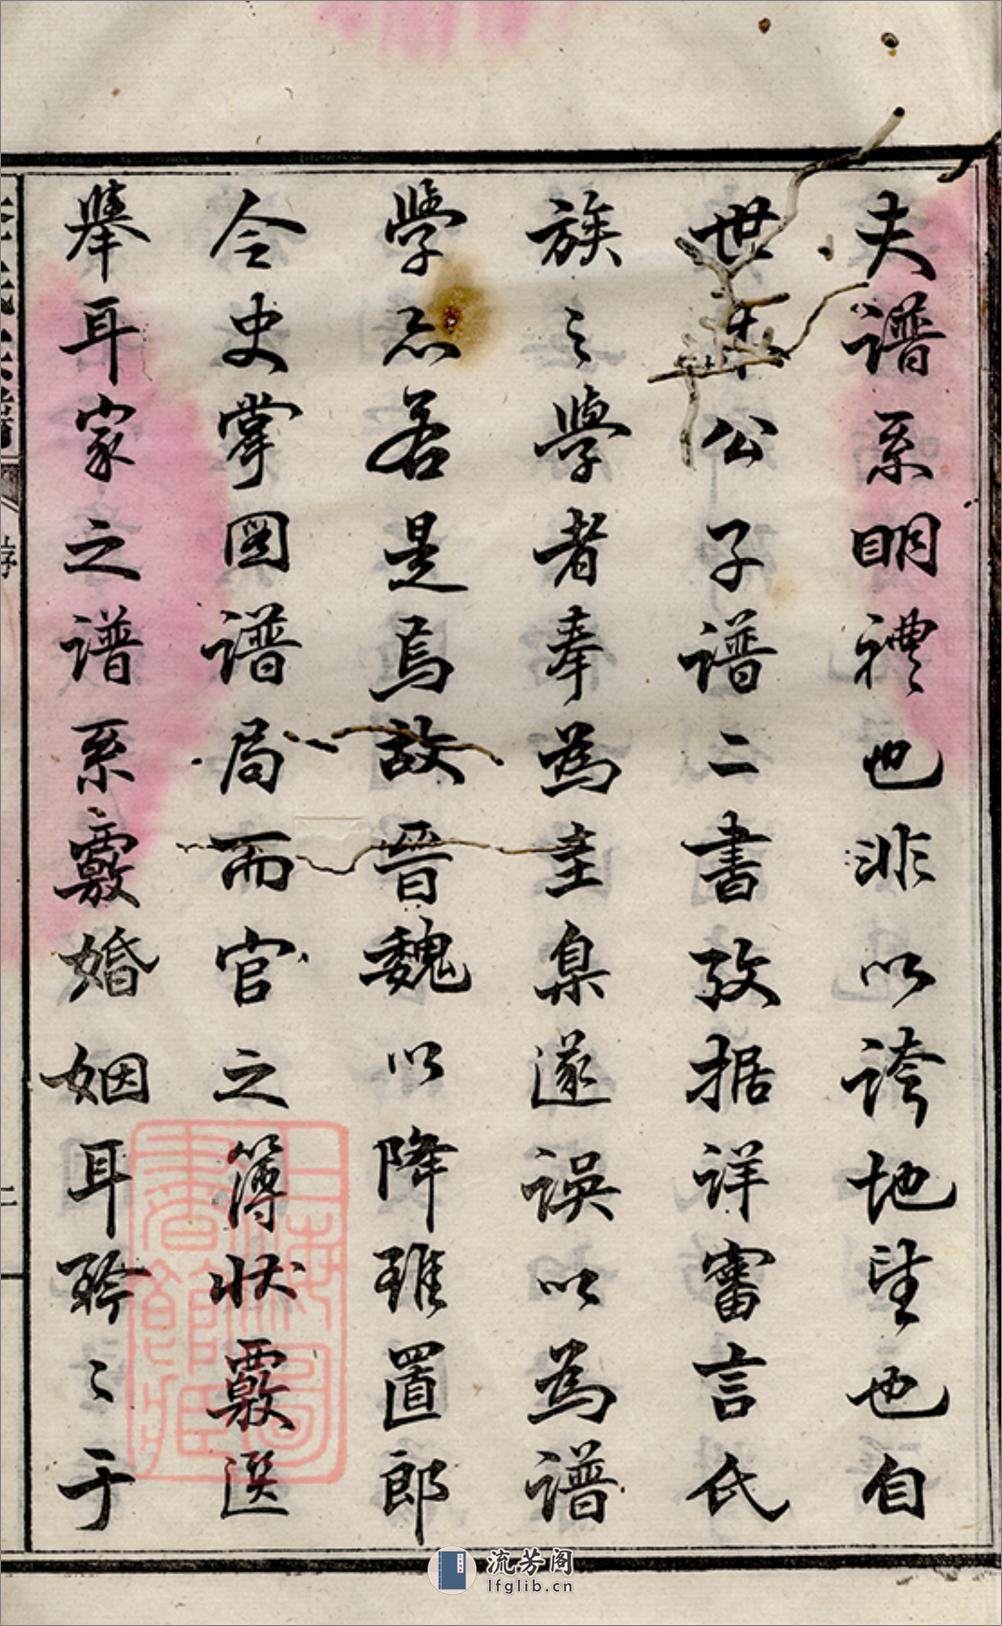 夫譜系明禮也非以誇地望也自
世本公子譜二書攷据詳審言氏
族之學者奉為圭臬遂誤以為譜
學忝若是焉故晉魏以降雖置郎
令史掌図譜局而官之簿状覈選
舉耳家之譜系覈婚姻耳矜〻于
序
二
上海圖書館藏
流芳阁
lfglib.cn